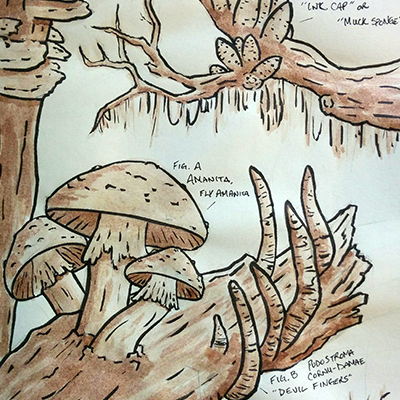 "INK CAP" OR
"MUCK SPONGE"
FIG. A
AMANITA,
FLY AMANICA
FIG. B PODOSTROMA
CORNU-DAMAE
"DEVIL FINGERS"